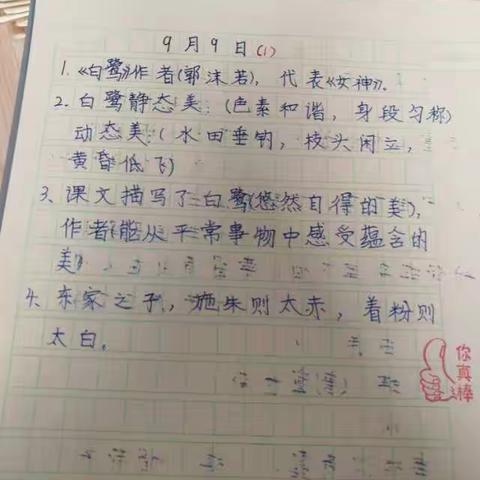 9月9日(1)
1.《白鹭》作者(郭沫若)，代表《女神》。
2.白鹭静态美：(色素和谐，身段匀称)
动态美：(水田垂钓，枝头闲立，
黄昏低飞)
3、课文描写了白鹭(悠然自得的美)，
作者(能从平常事物中感受蕴含的
美)
4.东家之子，施朱则太赤，着粉则
太白。
你真棒